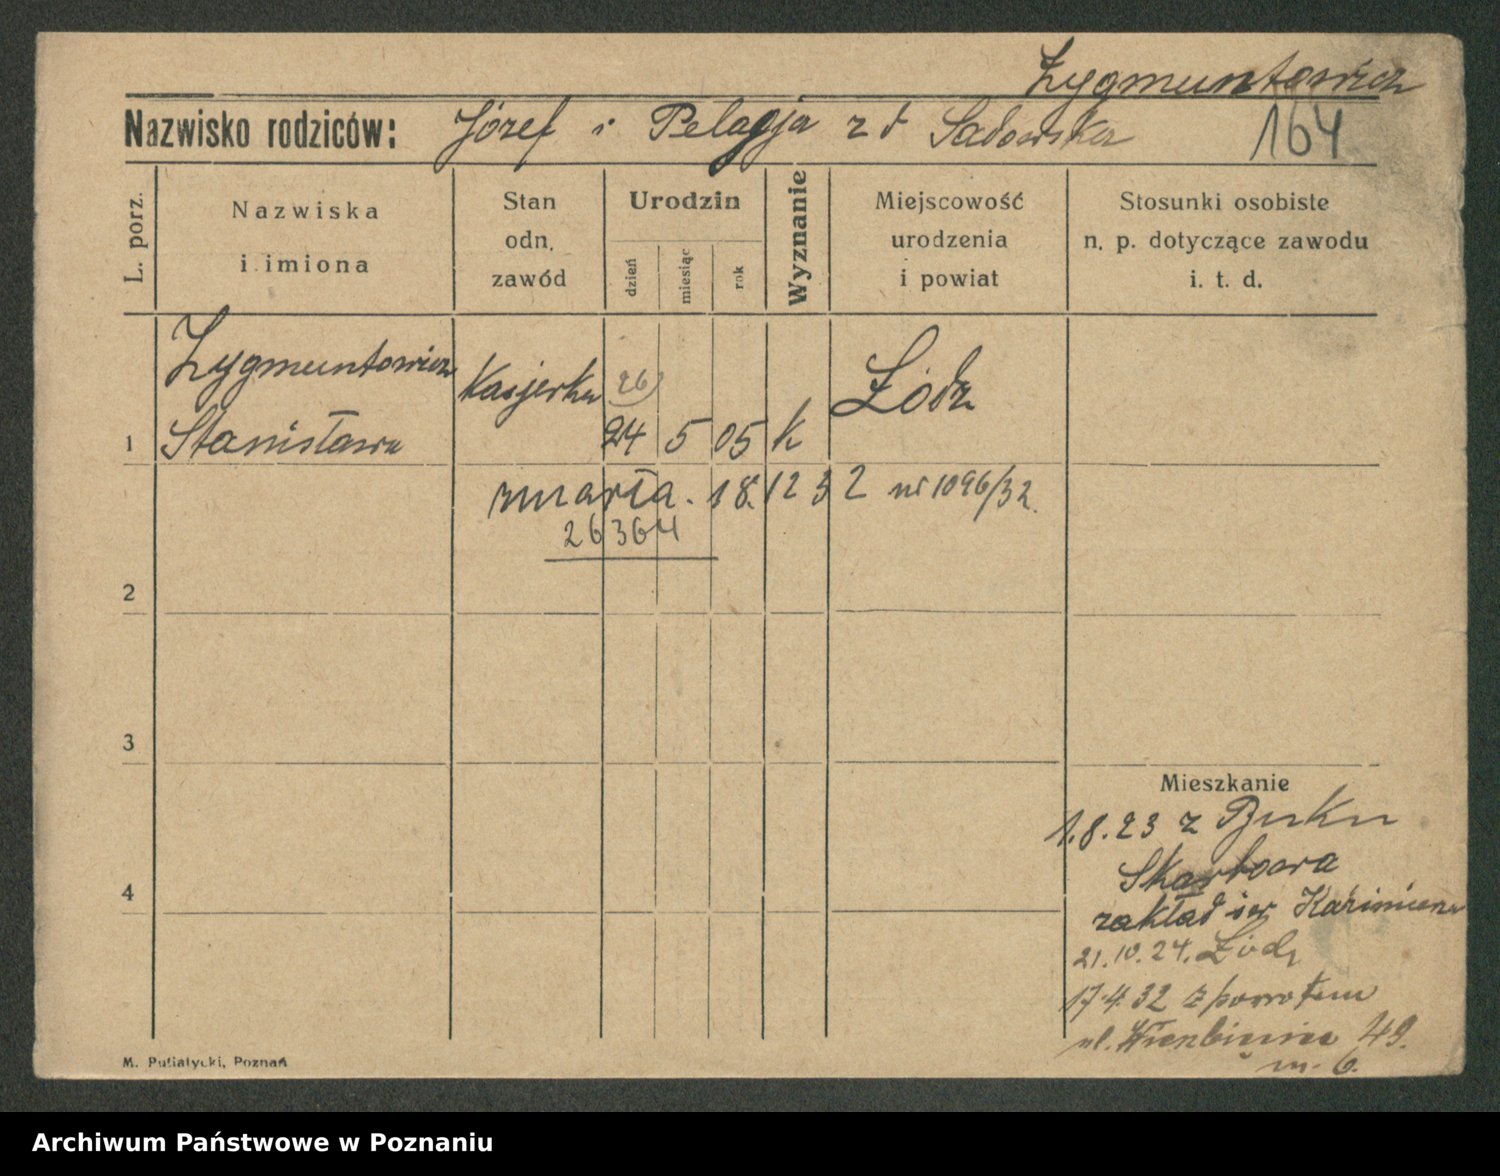 Zygmuntowicz
Nazwisko rodziców: Józef i Pelagja z d Sadowska 164
L. porz.
Nazwiska
i imiona
Stan
odn.
zawód
Urodzin
dzień
miesiąc
rok
Wyznanie
Miejscowość
urodzenia
i powiat
Stosunki osobiste
n. p. dotyczące zawodu
i. t. d.
Zygmuntowicz
Kasjerka 26 Łódz
1 Stanisława 24 5 05 k
zmarła. 18.12 32 nr 1096/32.
26364
2
3
Mieszkanie
1.8.23 z Buku
Skarbowa
4
zakład św Kazimierza
21.10.24. Łódź
17.4.32 z powrotem
ul. 49.
m. 6.
M. Putiatycki, Poznań
Archiwum Państwowe w Poznaniu